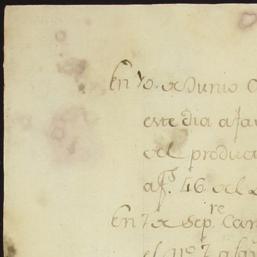 En 10. de Junio
este dia a fav
del produc
a fs. 46 del
En 7 de Sepre. Car
el no. 7 a fav